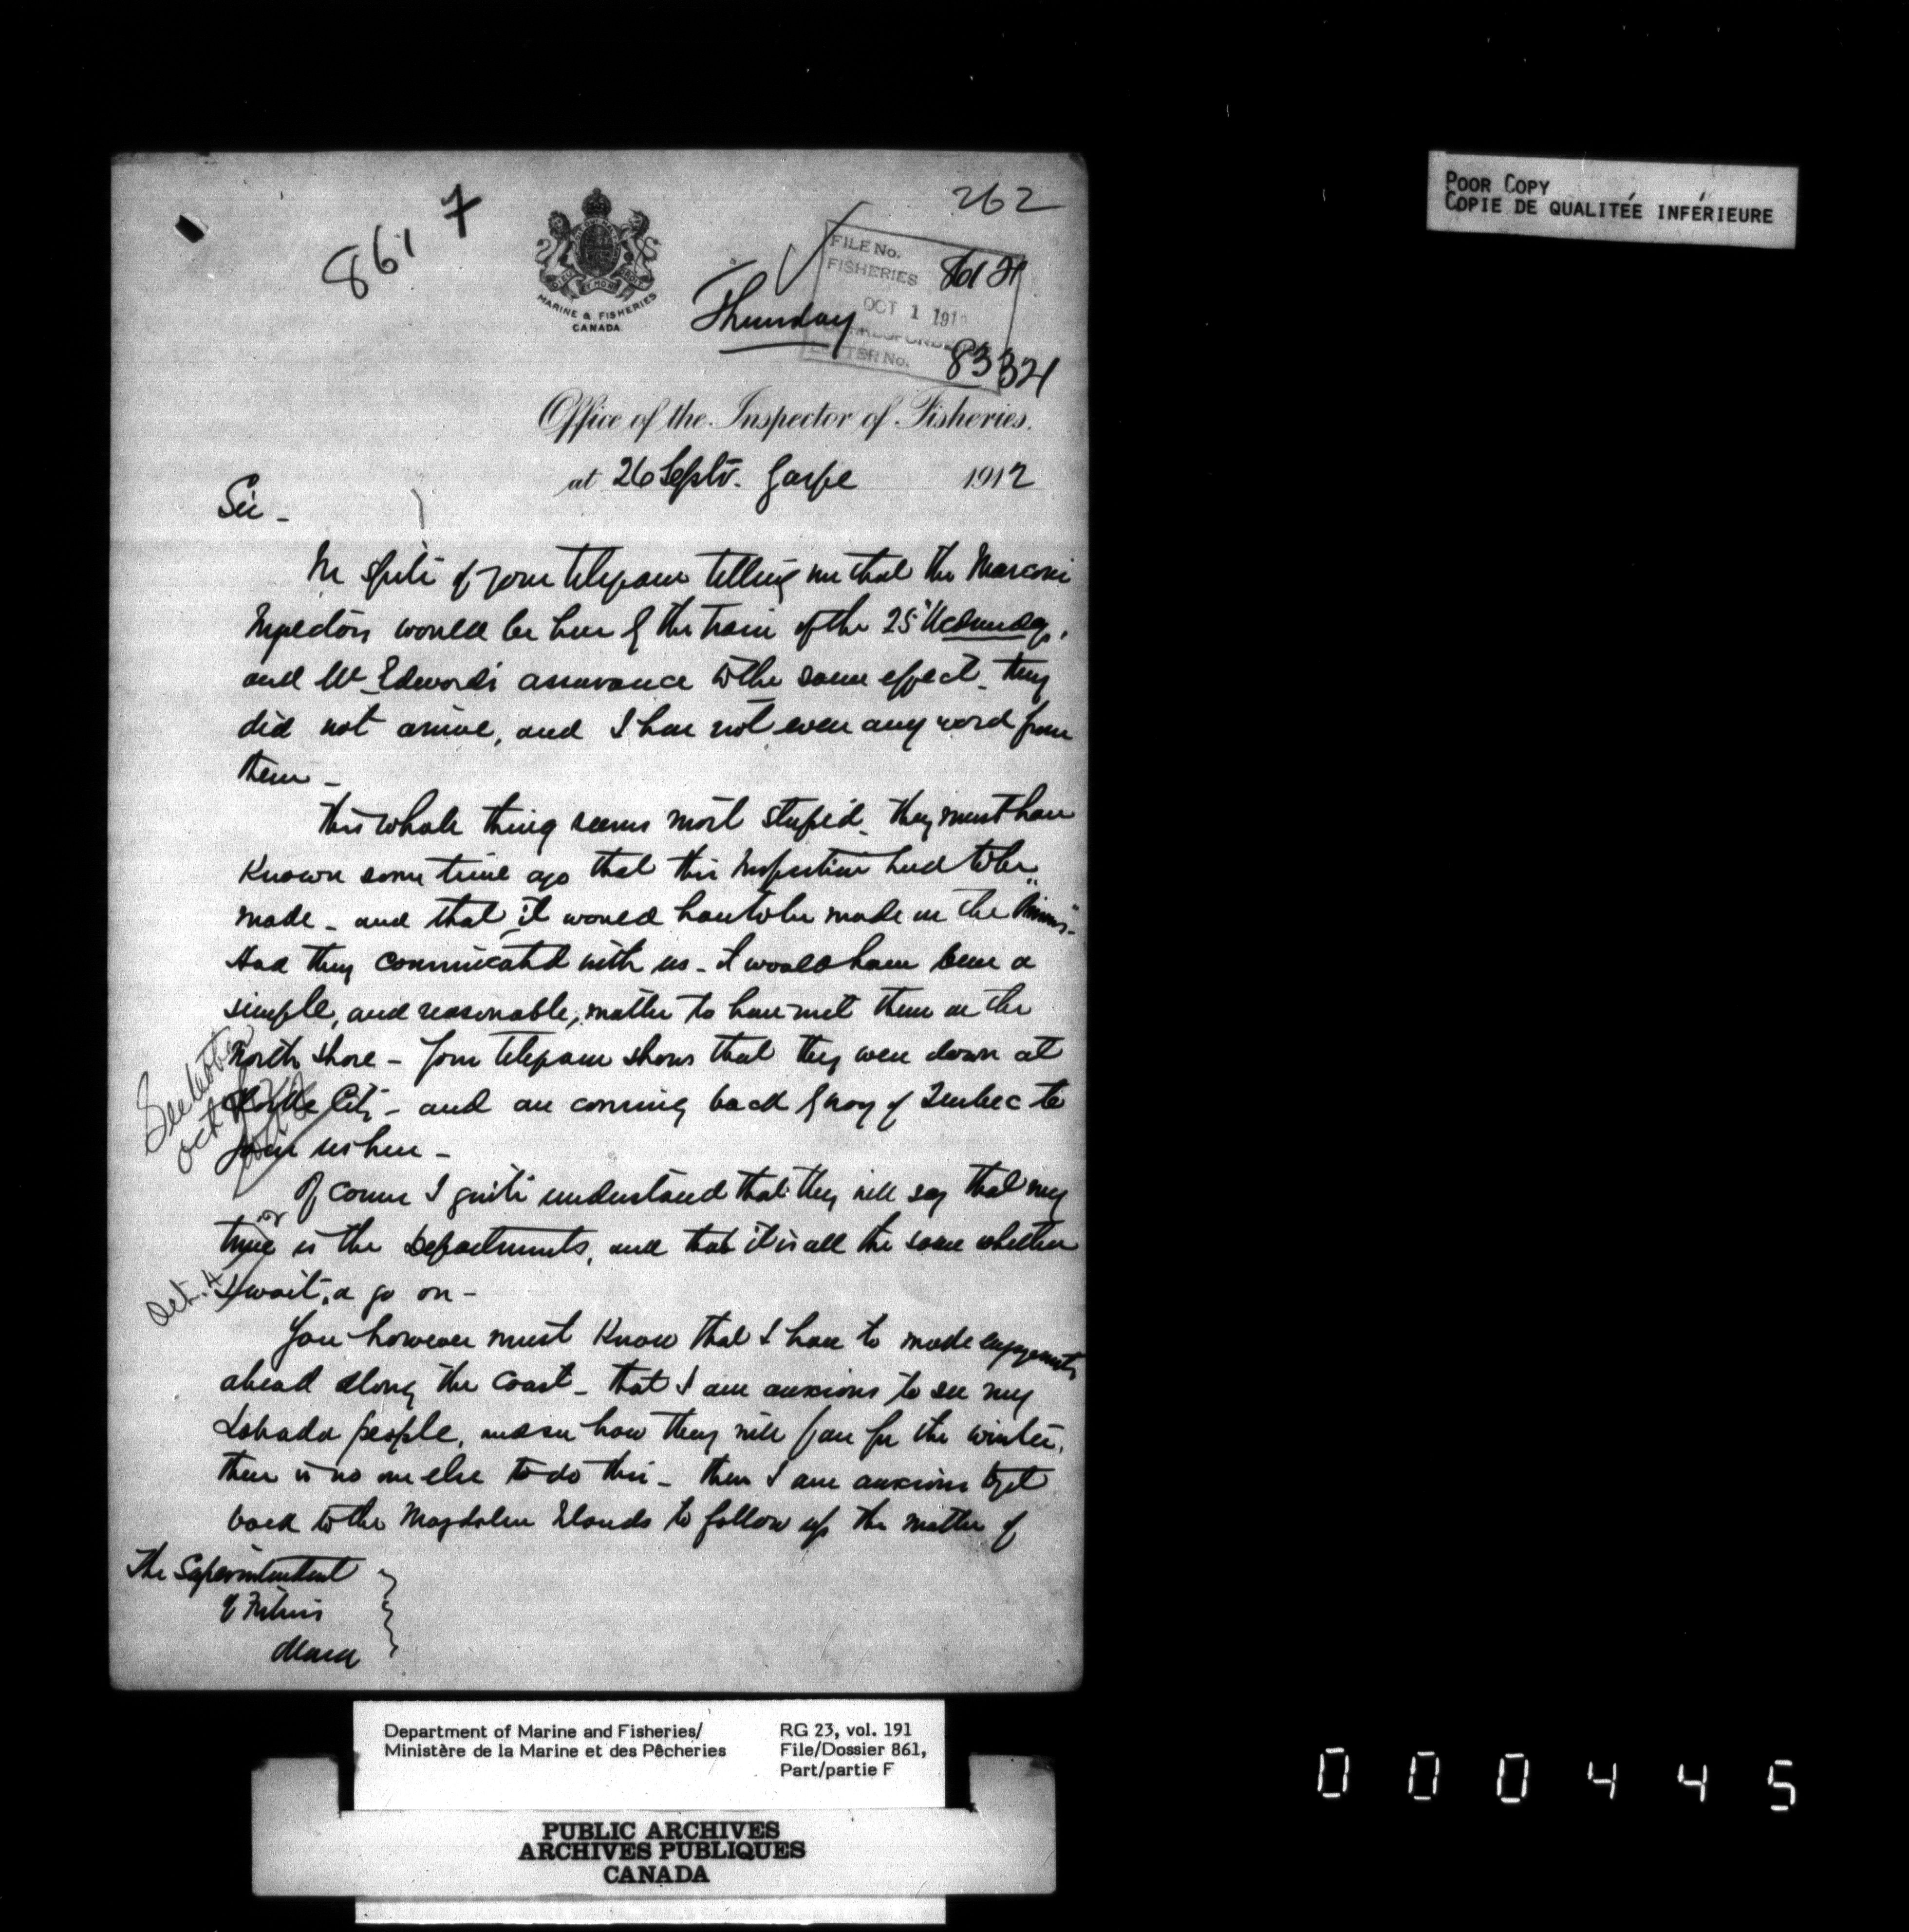 POOR COPY
COPIE DE QUALITÉE INFÉRIEURE
262
861 7
MARINE & FISHERIES
CANADA
FILE No.
FISHERIES 861
OCT 1 191
CORRESPONDENCE
LETTER No. 83321
Thursday
Office of the Inspector of Fisheries.
at 26 Septr. Gaspe 1912
Sir -
In spite of your telegram telling me that the Marconi
Inspectors would be here by the train of the 25th Wednesday,
and Mr Edwards assurance to the same effect - they
did not arrive, and I have not even any word from
them -
This whole thing seems most stupid - they must have
known some time ago that this Inspection had to be
made - and that it would have to be made in the "Princess" -
Had they communicated with us - it would have been a
simple, and reasonable, matter to have met them on the
North Shore - Your telegram shows that they were down at
Clarke City - and are coming back by way of Quebec to
join us here -
Of course I quite understand that they will say that my
time is the Departments, and that it is all the same whether
I wait, or go on -
You however must know that I have to made engagements
ahead along the coast - that I am anxious to see my
Labrador people, and see how they will fare for the winter,
there is no one else to do this - then I am anxious to get
back to the Magdalen Islands to follow up the matter of
The Superintendent
of Fisheries
Ottawa
See letter
Oct
Oct. 4
Department of Marine and Fisheries/
Ministère de la Marine et des Pêcheries
RG 23, vol. 191
File/Dossier 861,
Part/partie F
PUBLIC ARCHIVES
ARCHIVES PUBLIQUES
CANADA
000445